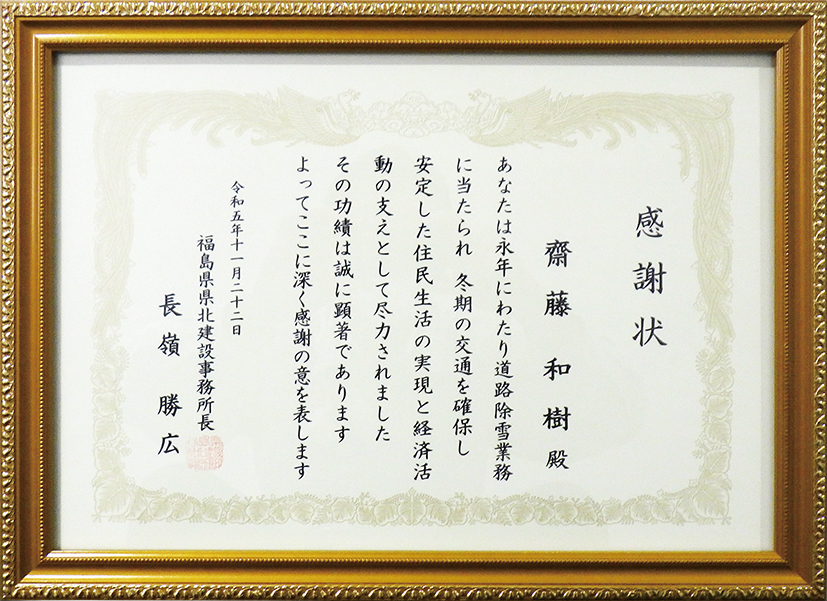 感謝状
齋藤和樹殿
あなたは永年にわたり道路除雪業務
に当たられ 冬期の交通を確保し
安定した住民生活の実現と経済活
動の支えとして尽力されました
その功績は誠に顕著であります
よってここに深く感謝の意を表します
令和五年十一月二十二日
福島県県北建設事務所長
長嶺勝広